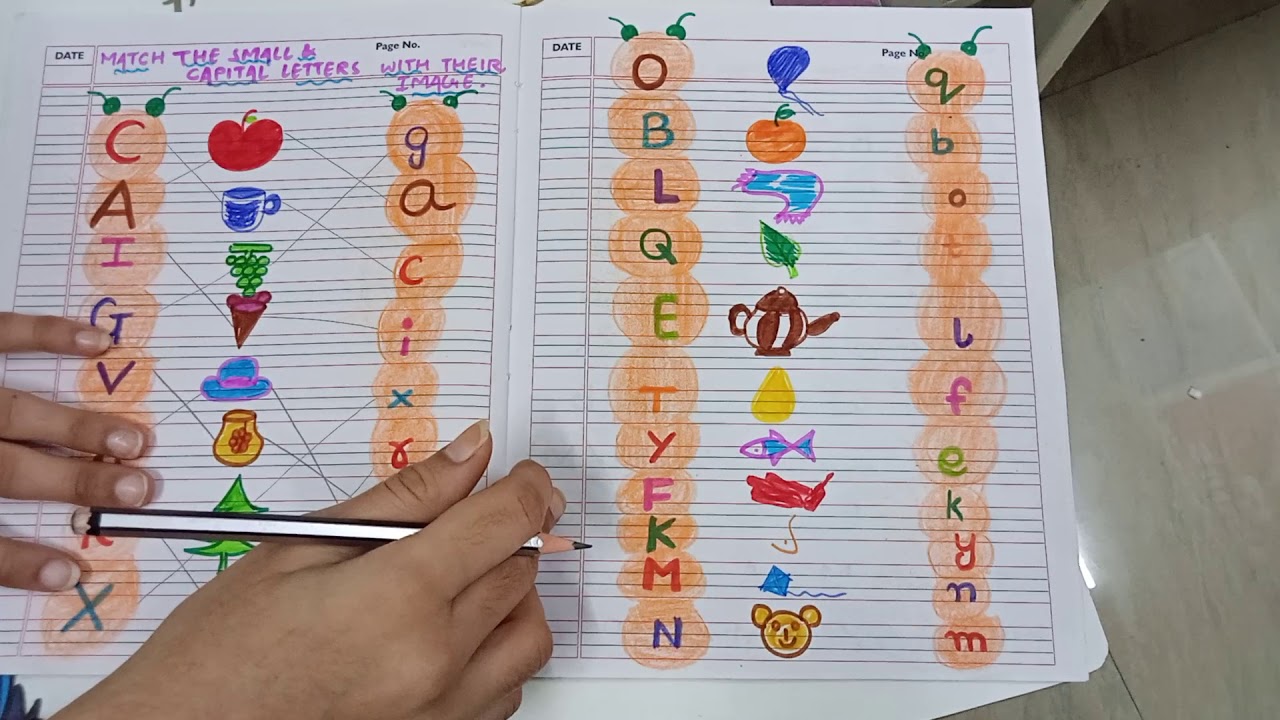 DATE
Page No.
MATCH THE SMALL &
CAPITAL LETTERS WITH THEIR
IMAGE.
C g
A a
I c
G i
V x
r
X
DATE
Page No.
O q
B b
L o
Q t
E l
T f
Y e
F k
K y
M n
N m